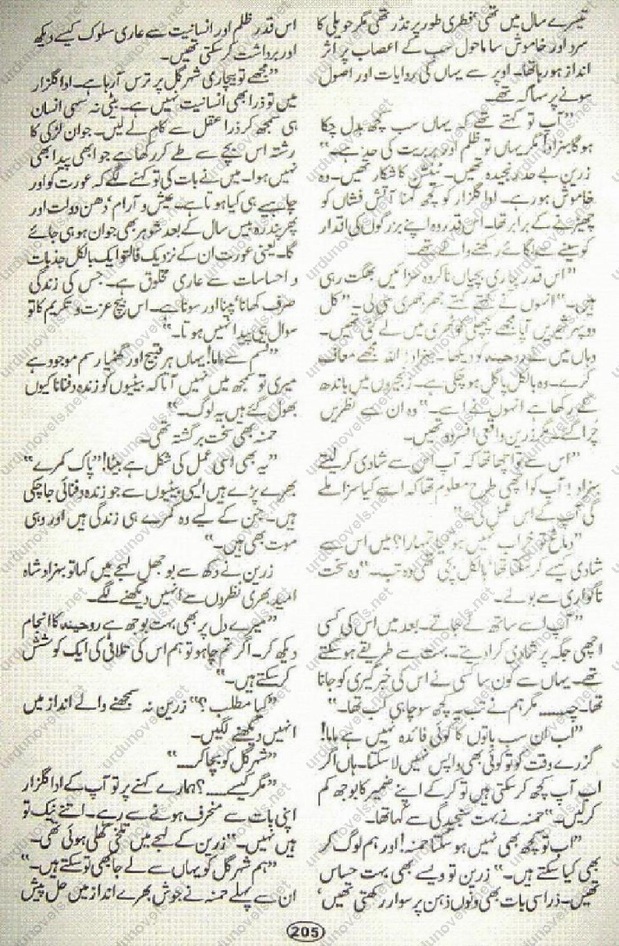 تیسرے سال میں تھی۔ فطری طور پر نڈر تھی مگر حویلی کا
سرد اور خاموش سا ماحول سب کے اعصاب پر اثر
انداز ہو رہا تھا۔ اوپر سے یہاں کی روایات اور اصول
سونے پر سہاگہ تھے۔
"آپ تو کہتے تھے کہ یہاں سب کچھ بدل چکا
ہو گا بہزاد! مگر یہاں تو ظلم اور بربریت کی حد ہے۔"
زرین بے حد رنجیدہ تھیں۔ ٹینشن کا شکار تھیں۔ وہ
خاموش ہو رہے۔ ادا گلزار کو کچھ کہنا آتش فشاں کو
چھیڑنے کے برابر تھا۔ اس قدر وہ اپنے بزرگوں کی اقدار
کو سینے سے لگائے رکھنے والے تھے۔
"اس قدر پیاری بچیاں ناکردہ سزائیں بھگت رہی
ہیں۔" انہوں نے کہتے کہتے جھرجھری سی لی۔ "کل
دوپہر شیریں آپا مجھے پچھلی کوٹھری میں لے گئی تھیں۔
وہاں میں نے روحینہ کو دیکھا۔ بہزاد! اللہ مجھے معاف
کرے۔ وہ بالکل پاگل ہو چکی ہے۔ زنجیروں میں باندھ
کے رکھا ہے انہوں نے اسے۔" وہ ان سے نظریں
چرا گئے۔ مگر زرین واقعی افسردہ تھیں۔
"اس سے تو اچھا تھا کہ آپ اس سے شادی کر لیتے
بہزاد! آپ کو اچھی طرح معلوم تھا کہ اسے کیا سزا ملے
گی آپ کے اس عمل کی۔"
"دماغ تو خراب نہیں ہو گیا تمہارا؟ میں اس سے
شادی کیسے کر سکتا تھا' بالکل بچی تھی وہ تب۔" وہ سخت
ناگواری سے بولے۔
"آپ اسے ساتھ لے جاتے۔ بعد میں اس کی کسی
اچھی جگہ پر شادی کرا دیتے۔ بہت سے طریقے ہو سکتے
تھے۔ یہاں سے کون سا کسی نے اس کی خبر گیری کو جانا
تھا۔ چپ۔۔۔۔ مگر ہم نے تب یہ کچھ سوچا ہی کب تھا۔"
"اب ان سب باتوں کا کوئی فائدہ نہیں ہے ماما!
گزرے وقت کو تو کوئی بھی واپس نہیں لا سکتا۔ ہاں اگر
اب آپ کچھ کر سکتی ہیں تو کر کے اپنے ضمیر کا بوجھ کم
کر لیں۔" حمنہ نے بہت سنجیدگی سے کہا تھا۔
"اب تو کچھ بھی نہیں ہو سکتا حمنہ! اور ہم لوگ کر
بھی کیا سکتے ہیں۔" زرین تو ویسے بھی بہت حساس
تھیں۔ ذرا سی بات بھی دنوں ذہن پر سوار رکھتی تھیں'
اس قدر ظلم اور انسانیت سے عاری سلوک کیسے دیکھ
اور برداشت کر سکتی تھیں۔
"مجھے تو بیچاری شہر گل پر ترس آ رہا ہے۔ ادا گلزار
میں تو ذرا بھی انسانیت نہیں ہے۔ بیٹی نہ سہی انسان
ہی سمجھ کر ذرا عقل سے کام لے لیں۔ جوان لڑکی کا
رشتہ اس بچے سے طے کر رکھا ہے جو ابھی پیدا بھی
نہیں ہوا۔ میں نے بات کی تو کہنے لگے کہ عورت کو اور
چاہیے ہی کیا ہوتا ہے۔ عیش و آرام' دھن دولت اور
پھر پندرہ بیس سال کے بعد شوہر بھی جوان ہو ہی جائے
گا۔ یعنی عورت ان کے نزدیک فالتو ایک بالکل جذبات
و احساسات سے عاری مخلوق ہے۔ جس کی زندگی
صرف کھانا' پینا اور سونا ہے۔ اس بیچ عزت و تکریم کا تو
سوال ہی پیدا نہیں ہوتا۔"
"قسم سے ماما! یہاں ہر قبیح اور گھٹیا رسم موجود ہے
میری تو سمجھ میں نہیں آتا کہ بیٹیوں کو زندہ دفنانا کیوں
بھول گئے ہیں یہ لوگ۔"
حمنہ بھی سخت برگشتہ تھی۔
"یہ بھی اسی عمل کی شکل ہے بیٹا! "پاک کمرے"
بھرے پڑے ہیں ایسی بیٹیوں سے جو زندہ دفنائی جا چکی
ہیں۔ جن کے لیے وہ کمرے ہی زندگی ہیں اور وہی
موت بھی ہیں۔"
زرین نے دکھ سے بوجھل لہجے میں کہا تو بہزاد شاہ
امید بھری نظروں سے انہیں دیکھنے لگے۔
"میرے دل پر بھی بہت بوجھ ہے روحینہ کا انجام
دیکھ کر۔ اگر تم چاہو تو ہم اس کی تلافی کی ایک کوشش
کر سکتے ہیں۔"
"کیا مطلب؟" زرین نہ سمجھنے والے انداز میں
انہیں دیکھنے لگیں۔
"شہر گل کو بچا کر۔۔۔"
"مگر کیسے۔۔۔؟ ہمارے کہنے پر تو آپ کے ادا گلزار
اپنی بات سے منحرف ہونے سے رہے۔ اتنے نیک تو
ہیں نہیں۔" زرین کے لہجے میں تلخی گھلی ہوئی تھی۔
"ہم شہر گل کو یہاں سے لے جا بھی تو سکتے ہیں۔"
ان سے پہلے حمنہ نے جوش بھرے انداز میں حل پیش
205
urdunovels.net